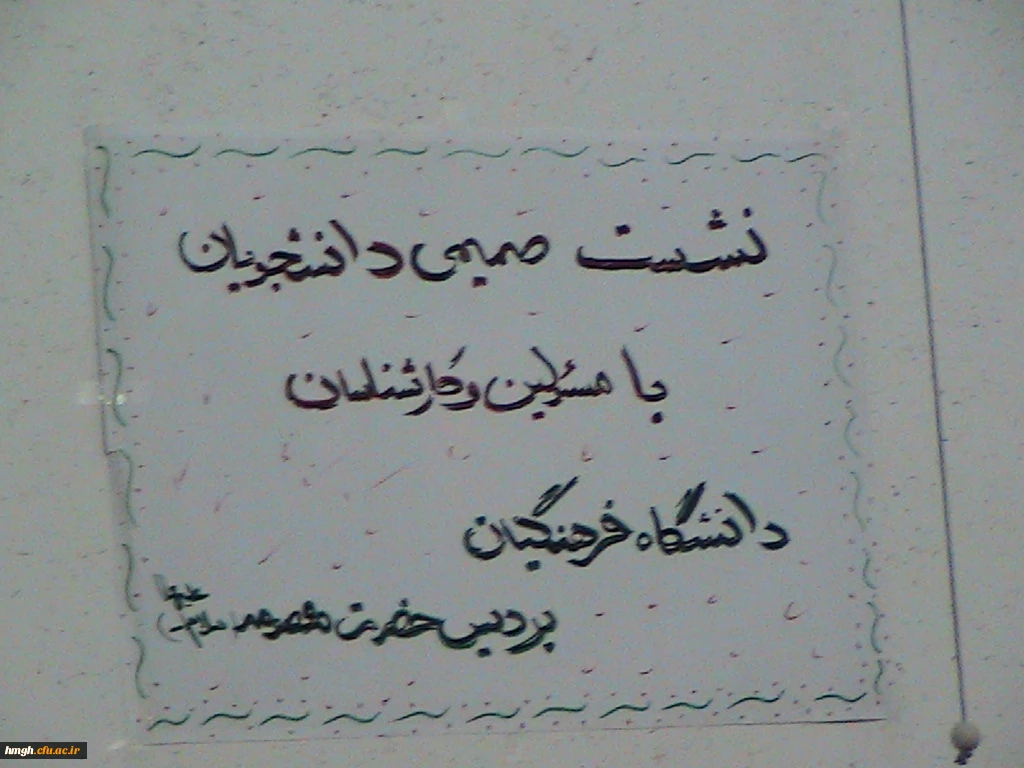 نشست صمیمی دانشجویان
با مسئولین و کارشناسان
دانشگاه فرهنگیان
پردیس حضرت معصومه سلام الله علیها
hmgh.cfu.ac.ir